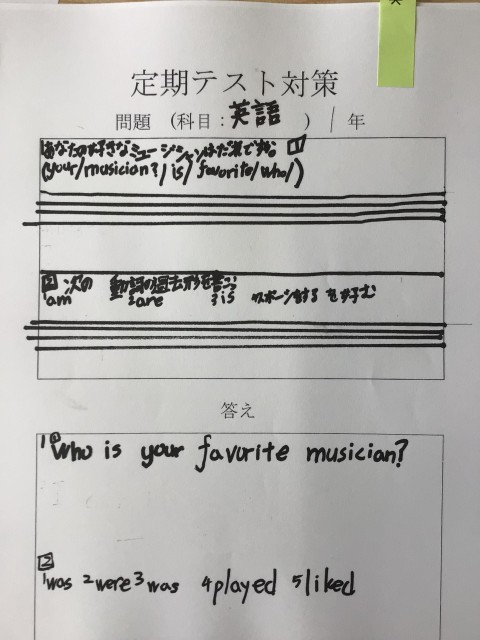 定期テスト対策
問題 (科目:英語 ) 1年
あなたの好きなミュージシャンはだれですか。 1
(your/musician?/is/favorite/who/)
2 次の 動詞の過去形を書こう
1am 2are 3is スポーツをする を好む
答え
1 Who is your favorite musician?
2
1was 2were 3was 4played 5liked